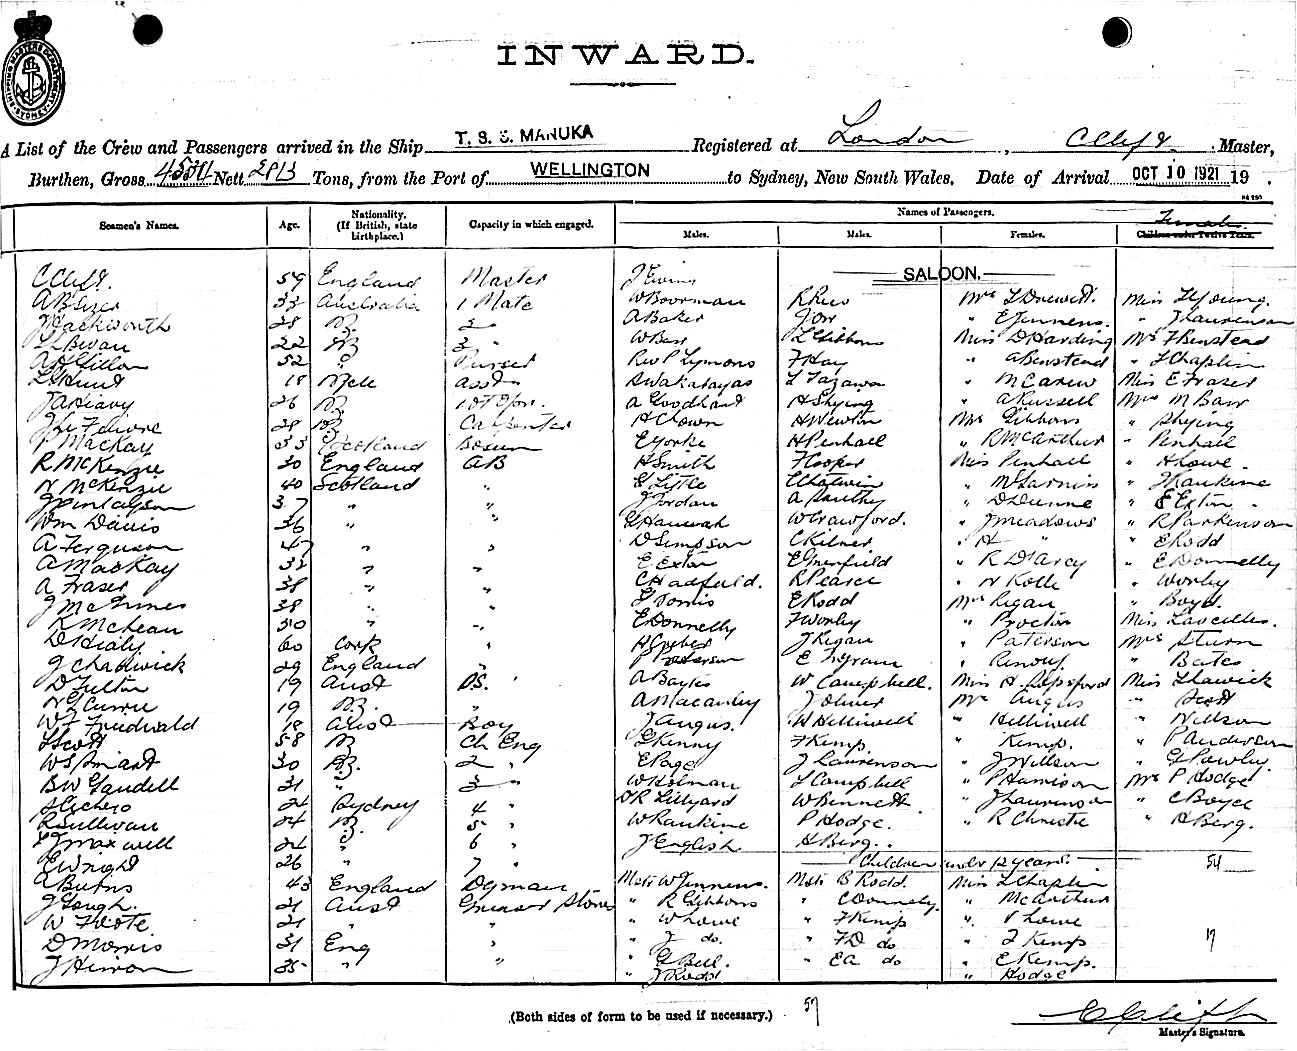 INWARD.
A List of the Crew and Passengers arrived in the Ship T. S. S. MANUKA Registered at London, C Clift. Master,
Burthen, Gross 4534 Nett 2813 Tons, from the Port of WELLINGTON to Sydney, New South Wales. Date of Arrival OCT 10 1921 19 .
Names of Passengers.
Seamen's Names. Age. Nationality. (If British, state birthplace.) Capacity in which engaged. Males. Males. Females. Children under Twelve Years. Female.
SALOON.
C Clift. 59 England Master J Ewing
33 Australia 1 Mate W Boorman Mrs L Drewett. Miss L Young.
J Mackworth 28 2 " A Baker J Orr " E Jennens. " J Laurenson
L Bevan 22 3 " W Barr L Gibbons Miss D Harding Mrs F Benstead
52 " Purser Rev P Lymons F Hay " A Benstead " L Chaplin
L Hunt 18 Asst " S Wakabayas L Tazawa " M Carew Miss E Fraser
26 A Goodhand H Shying " A Russell Mrs M Barr
J Le Feuvre 28 Carpenter H Clown H Newton Mrs Gibbons " Shying
P MacKay 33 Scotland Bosun E Yorke H Penhall " R McArthur " Penhall
R McKenzie 30 England AB H Smith F Cooper Miss Penhall " H Lowe.
N McKenzie 40 Scotland " G Little " M Larnis " J Rankine
J Finlayson 37 " " J Jordan " D Dunne " E Exton.
Wm Davis 36 " " G Hannah W Crawford. " J Meadows " R Parkinson
A Ferguson 47 " " D Simpson C Kilner " H " " E Rodd
A MacKay 32 " " E Exton E Greenfield " R D'Arcy " E Donnelly
A Fraser 38 " " C Hadfield. R Pearce " N Kolle " Worley
J McInnes 38 " " E Rodd Mrs Regan " Boyd.
R McLean 50 " " E Donnelly F Worley " Procter Miss Lascelles.
D Healy 60 Cork " J Regan " Paterson Mrs Sturn
J Chadwick 29 England " P Peterson E Ingram " Renouf. " Bates
D Fulton 19 Aust OS. A Bayles W Campbell. Miss H Lapsford Miss L Hawick
N G Currie 19 N.Z. " A Macauley J Oliver Mrs Angus " Scott
W F Friedwald 18 Aust Boy J Angus. H Helliwell " Helliwell " Neilson
L Scott 58 Ch Eng G Kenny F Kemp. " Kemp. " P Anderson
30 2 " E Page J Laurenson " J Neilson " G Pawley.
B W Gaudell 31 " 3 " W Holman L Campbell " P Harrison Mrs P Hodge
24 Sydney 4 " D R Lillyard W Bennett " J Laurenson " C Boyce
R Sullivan 24 5 " W Rankine P Hodge. " R Christie " H Berg.
J Maxwell 24 " 6 " J English H Berg.
E Wright 26 " 7 " Children under 12 years. 54
A Burns 43 England Mstr W Jennens. Mstr B Rodd. Miss L Chaplin
J Gough. 21 Aust Greaser " R Gibbons " C Donnelly. " McArthur
W Foote 21 " " " W Lowe " F Kemp " V Lowe
D Morris 31 Eng " " J do. " F D do " I Kemp 17
35 " " " G Bell. " E A do " E Kemp.
" J Rodd " Hodge
(Both sides of form to be used if necessary.) 57
C Clift
Master's Signature.